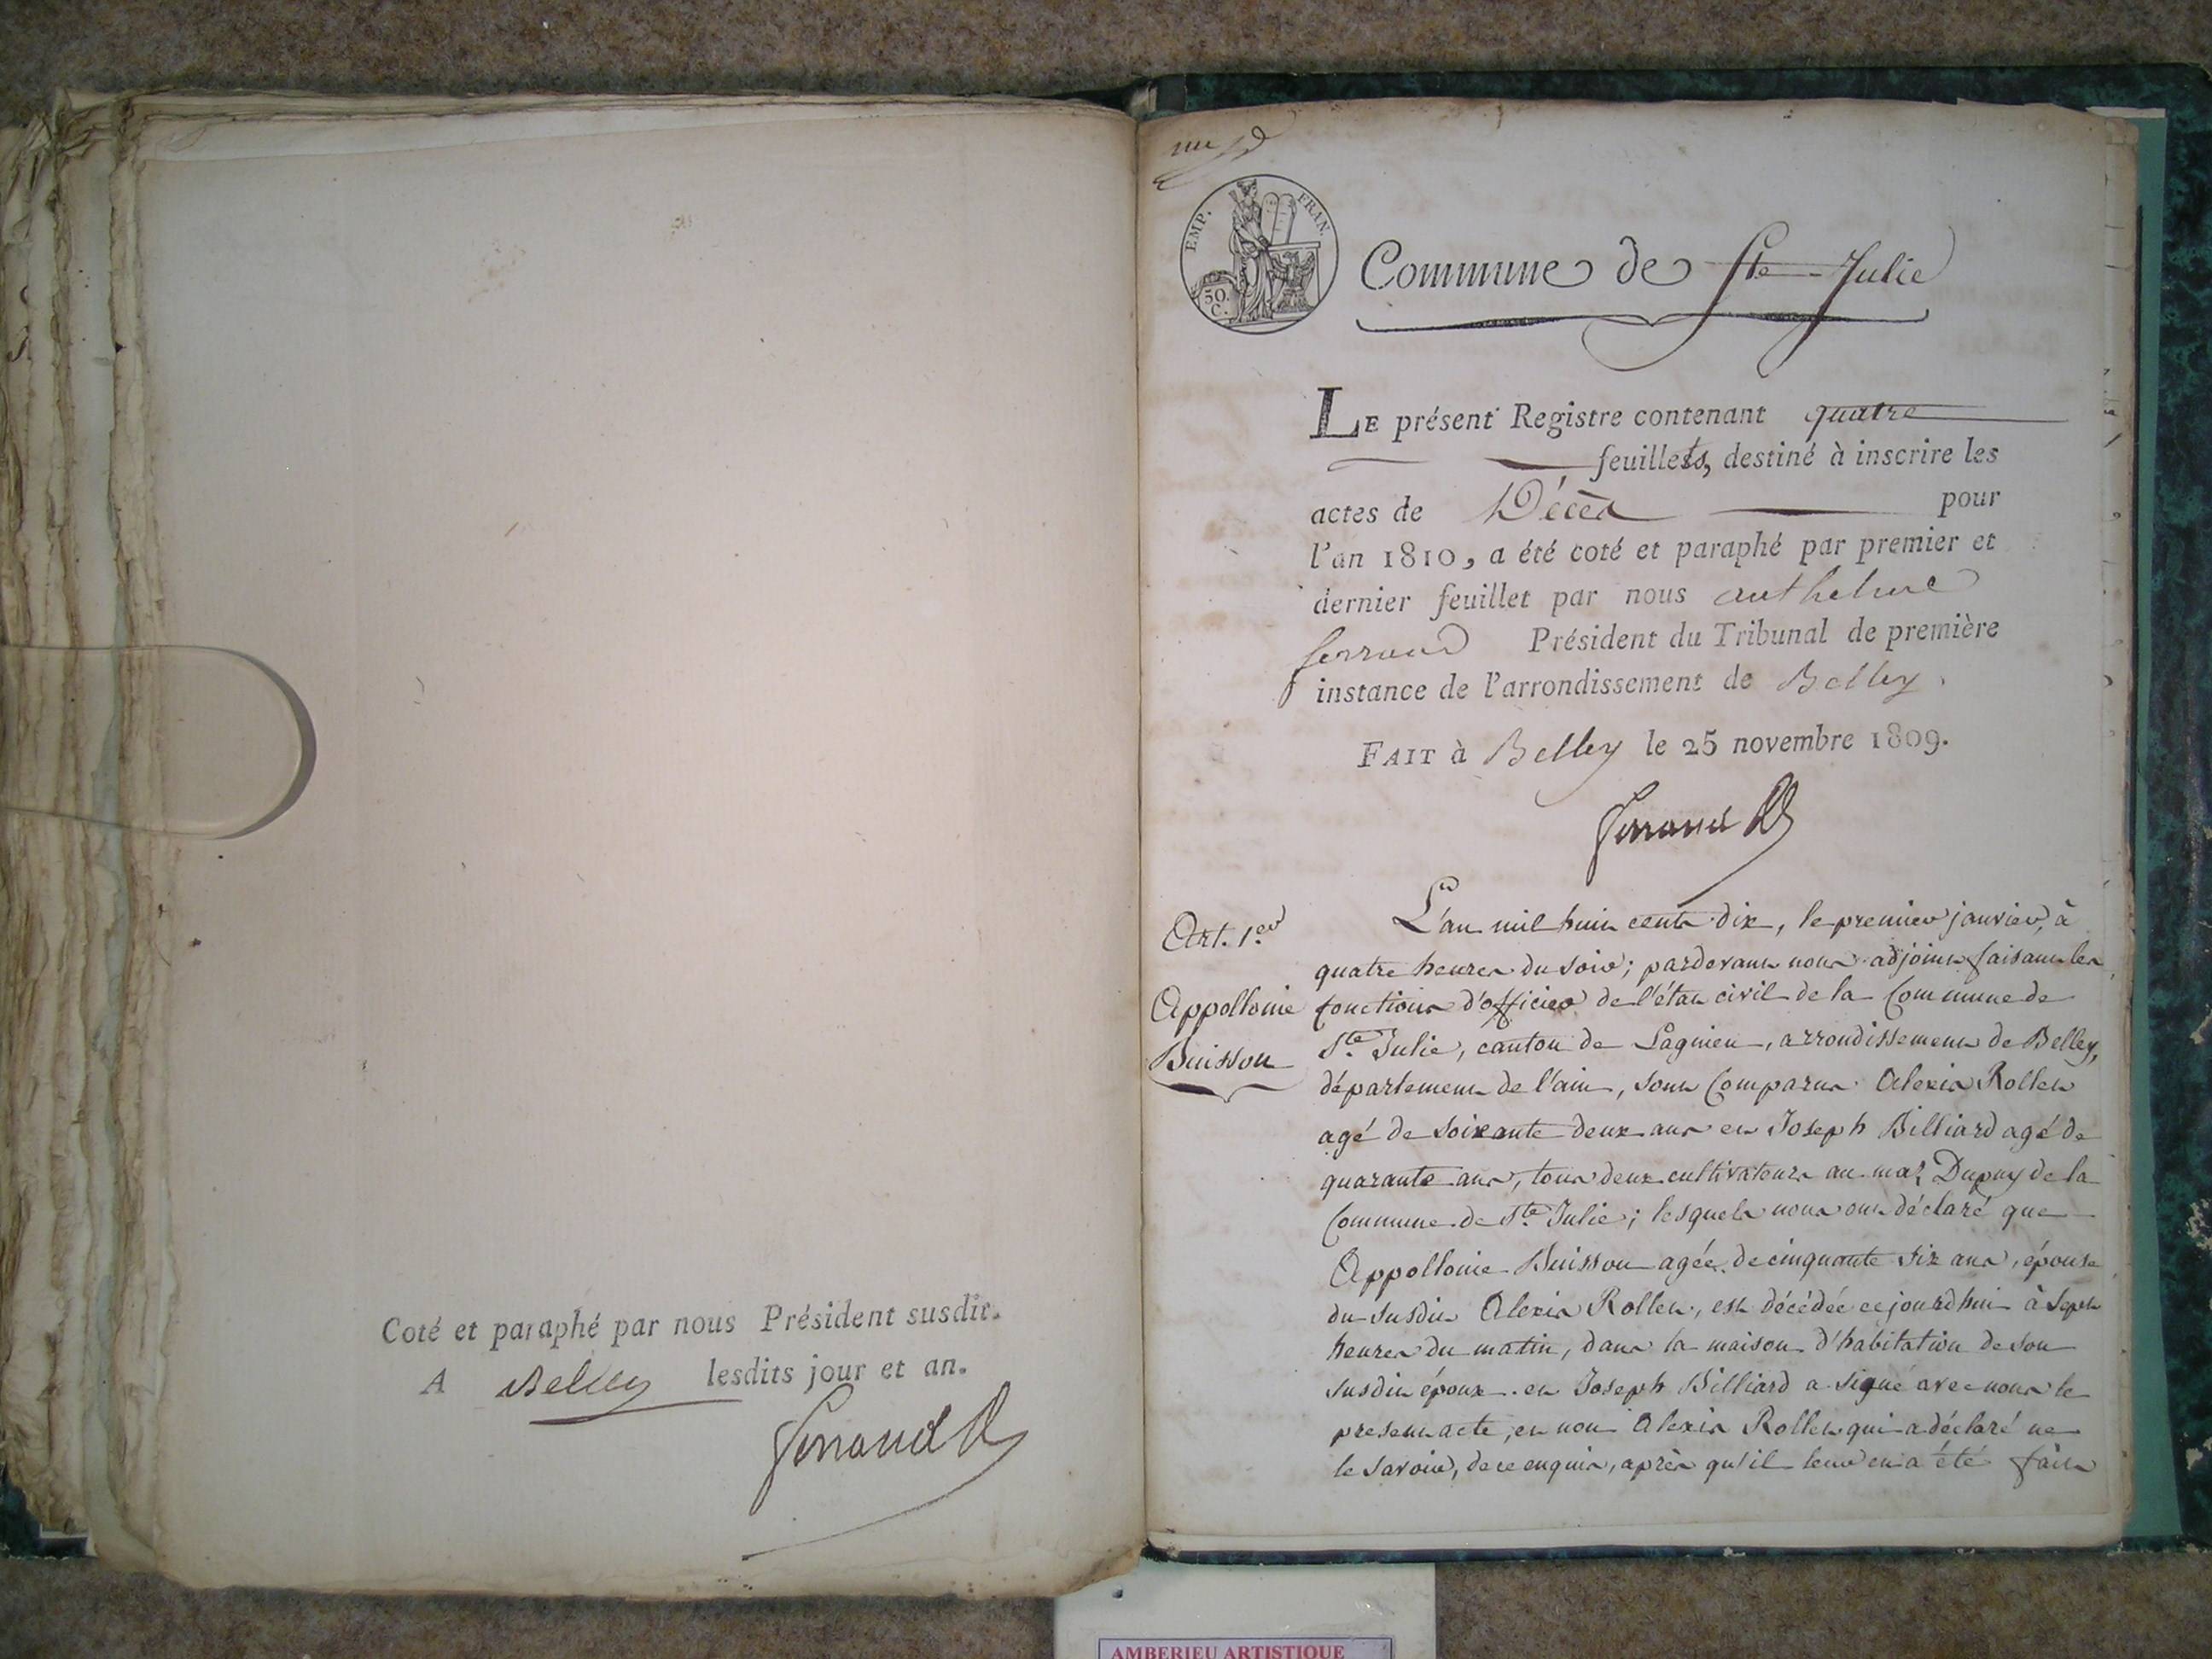 Coté et paraphé par nous Président susdit.
A Belley lesdits jour et an.
Ferrand
EMP. FRAN.
50.
C.
Commune de Ste Julie
LE présent Registre contenant quatre
feuillets, destiné à inscrire les
actes de Décès pour
l'an 1810, a été coté et paraphé par premier et
dernier feuillet par nous anthelme
ferrand Président du Tribunal de première
instance de l'arrondissement de Belley.
FAIT à Belley le 25 novembre 1809.
Ferrand
Art. 1.er
Appollonie
Buisson
L'an mil huit cent dix, le premier janvier, à
quatre heures du soir; pardevant nous adjoint faisant les
fonctions d'officier de l'état civil de la Commune de
Ste Julie, canton de Lagnieu, arrondissement de Belley,
département de l'ain, sont Comparus Alexis Rollet
agé de soixante deux ans et Joseph Billiard agé de
quarante ans, tous deux cultivateurs au maz Dupuy de la
Commune de Ste Julie; lesquels nous ont déclaré que
Appollonie Buisson agée de cinquante six ans, épouse
du susdit Alexis Rollet, est décédée cejourdhui à sept
heures du matin, dans la maison d'habitation de son
susdit époux. et Joseph Billiard a signé avec nous le
present acte, et non Alexis Rollet qui a déclaré ne
le savoir, de ce enquis, après qu'il leur en a été fait
AMBERIEU ARTISTIQUE